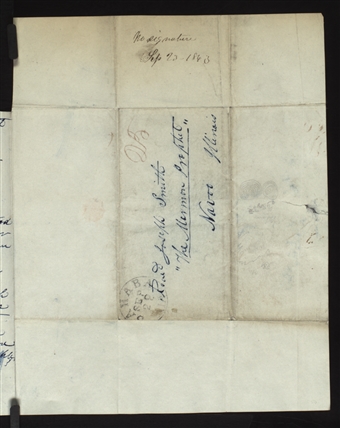 No signature
Sep 23 - 1843
25
Revd Joseph Smith
"The Mormon Prophet"
Navoo
Illinois
SEP